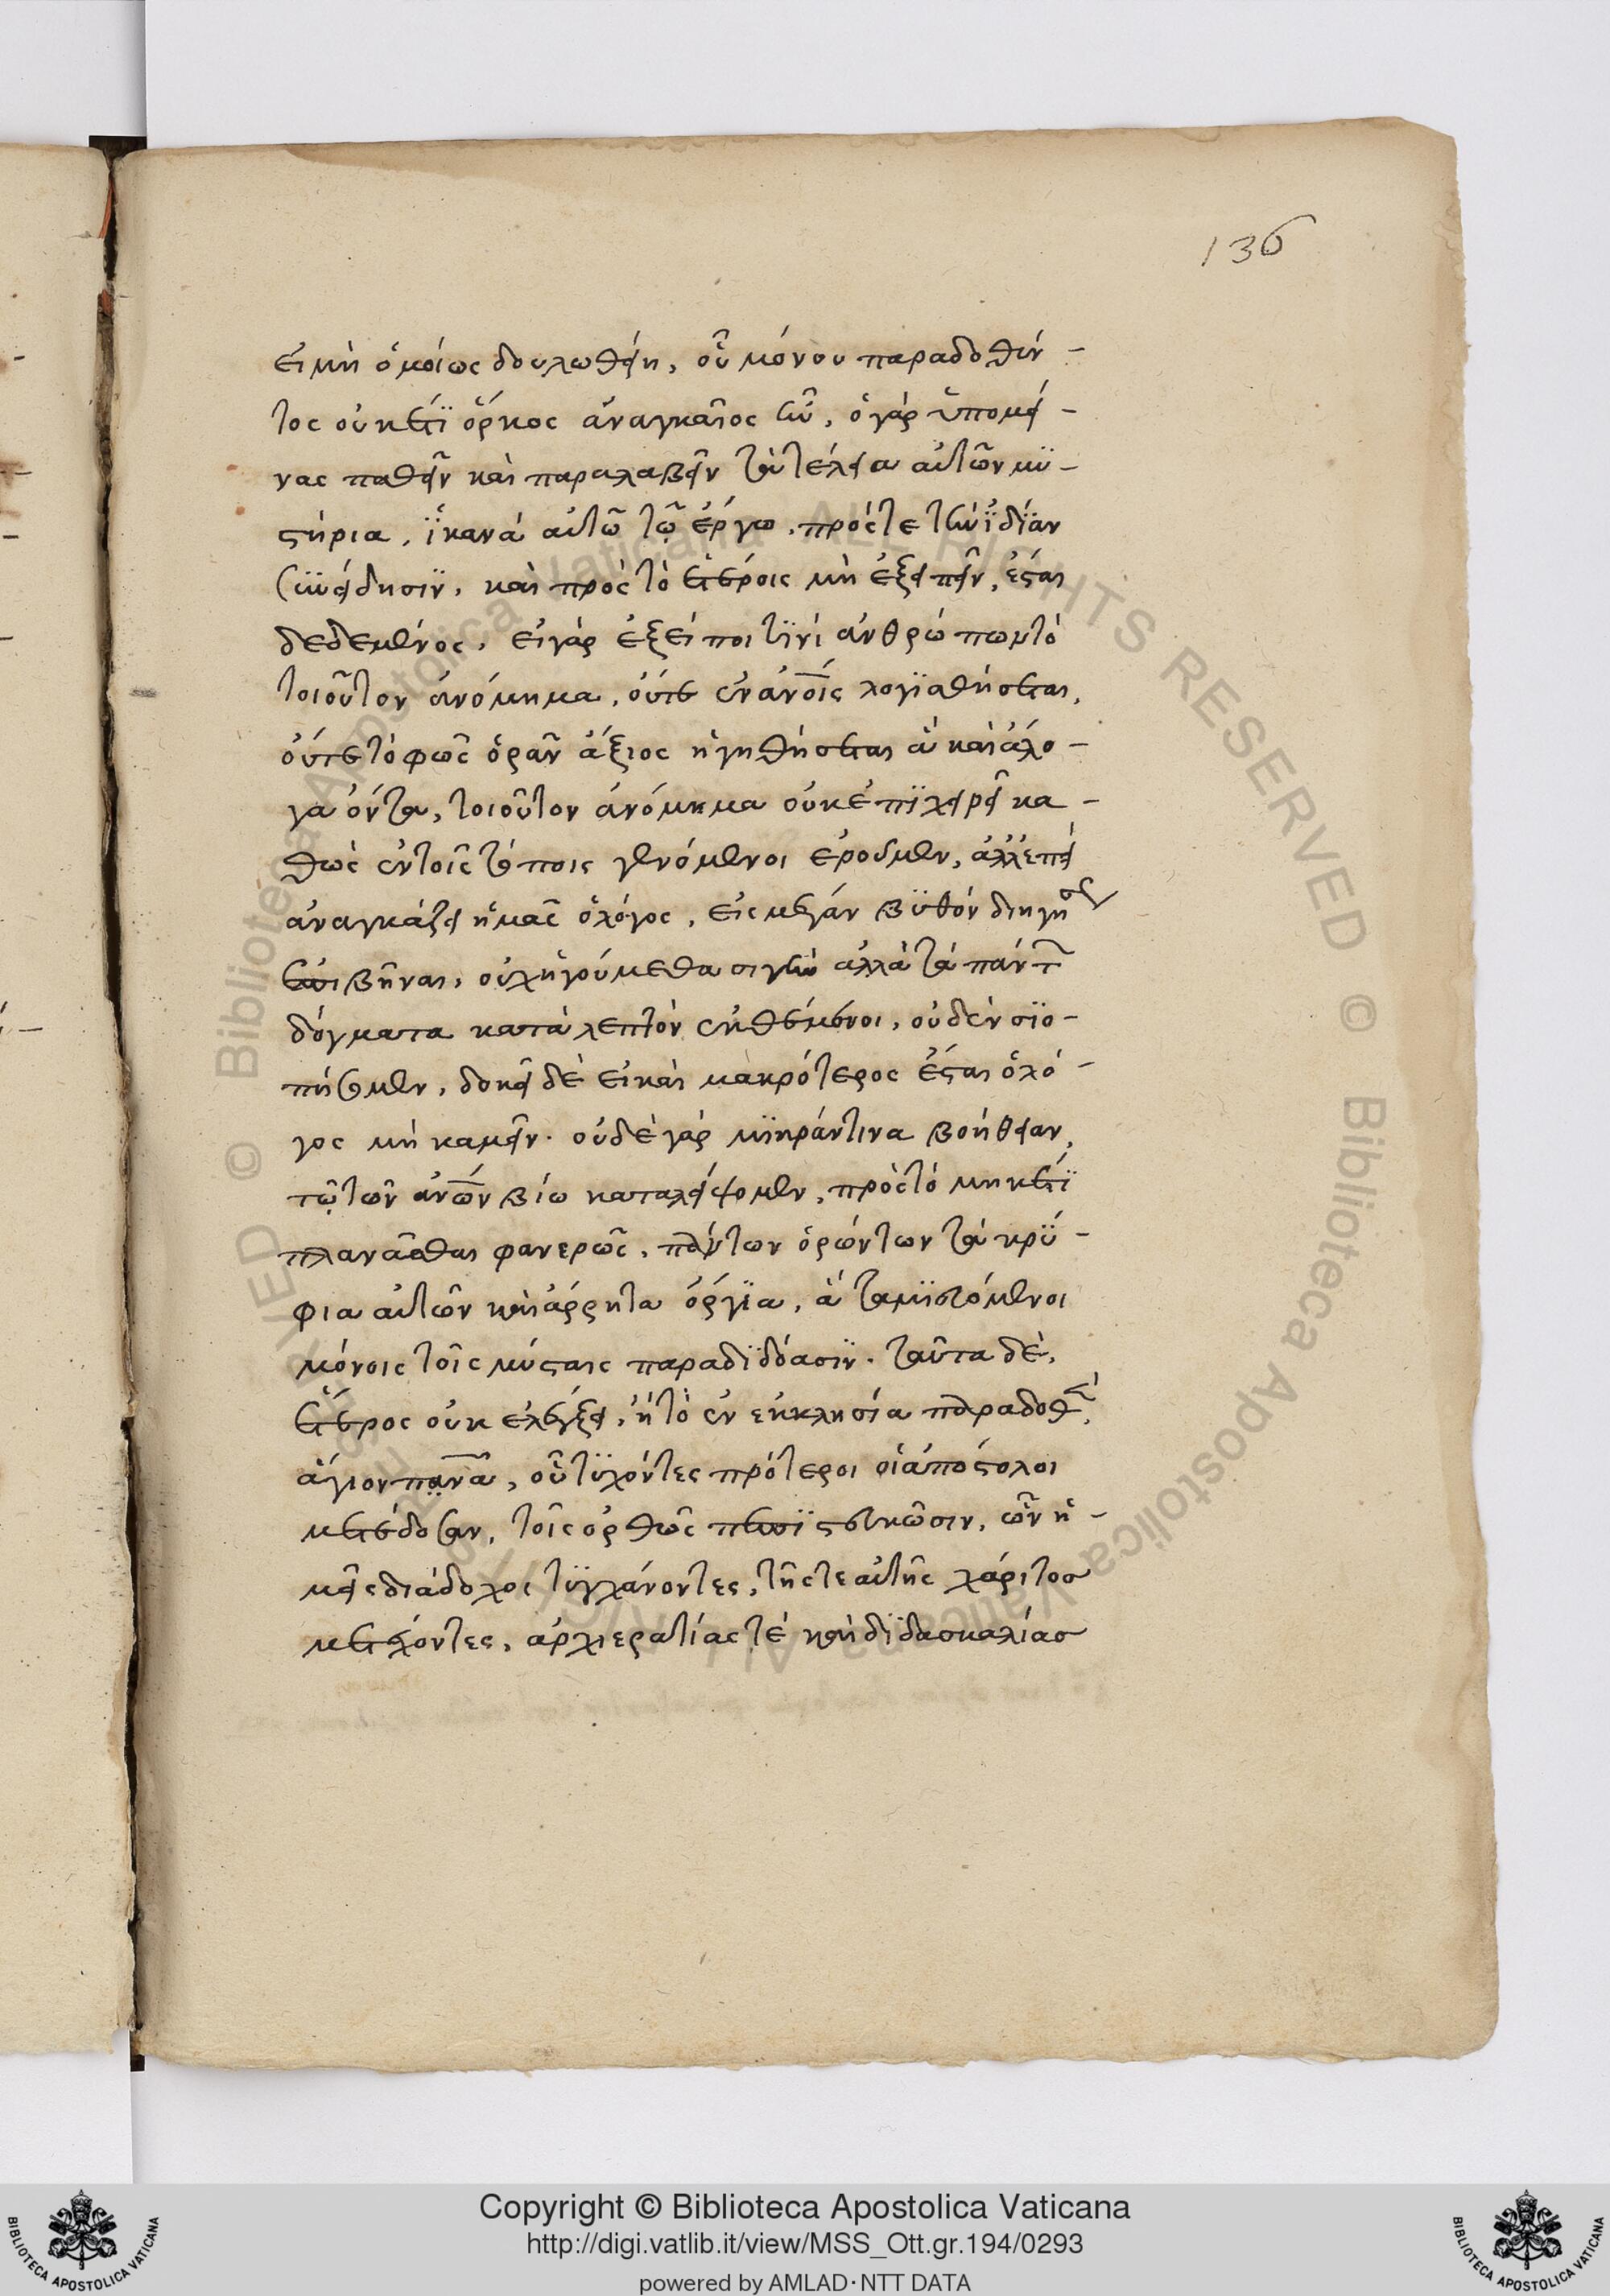 136
εἰ μὴ ὁμοίως δουλωθείη, οὗ μόνου παραδοθέν-
τος οὐκέτι ὅρκος ἀναγκαῖος ἦν, ὁ γὰρ ὑπομεί-
νας παθεῖν καὶ παραλαβεῖν τὰ τέλεια αὐτῶν μυ-
στήρια, ἱκανὰ αὐτῶ τῷ ἔργω, πρός τε τὴν ἰδίαν
συνείδησιν, καὶ πρὸς τὸ ἑτέροις μὴ ἐξειπεῖν, ἔσται
δεδεμένος, εἰ γὰρ ἐξείποι τινί ἀνθρώπων τὸ
τοιοῦτον ἀνόμημα, οὔτε ἐν ἀνοῖς λογιαθήσεται,
οὔτε τὸ φῶς ὁρᾶν ἄξιος ἡγηθήσεται ἃ καὶ ἄλο-
γα ὄντα, τοιοῦτον ἀνόμημα οὐκ ἐπιχειρεῖ κα-
θὼς ἐν τοῖς τόποις γενόμενοι ἐροῦμεν, ἀλλ' ἐπεὶ
ἀναγκάζει ἡμᾶς ὁ λόγος, εἰς μέγαν βυθὸν διηγήσεως
ἐπιβῆναι, οὐχ ἡγούμεθα σιγᾶν ἀλλὰ τὰ πάντων
δόγματα κατὰ λεπτὸν ἐκθέμενοι, οὐδὲν σιο-
πήσομεν, δοκεῖ δὲ εἰ καὶ μακρότερος ἔσται ὁ λό-
γος μὴ καμεῖν. οὐδὲ γὰρ μικράν τινα βοήθειαν,
τῷ τῶν ἀνων βίω καταλείψομεν, πρὸς τὸ μηκέτι
πλανᾶσθαι φανερῶς, πάντων ὁρώντων τὰ κρύ-
φια αὐτῶν καὶ ἄρρητα ὄργια, ἃ ταμιευόμενοι
μόνοις τοῖς μύσταις παραδιδόασιν. ταῦτα δὲ,
ἕτερος οὐκ ἐλέγξει, ἢ τὸ ἐν ἐκκλησία παραδοθὲν,
ἅγιον πνα, οὗ τυχόντες πρότεροι οἱ ἀπόστολοι
μετέδοσαν, τοῖς ὀρθῶς πεπιστευκόσιν, ὧν ἡ-
μεῖς διάδοχοι τυγχάνοντες, τῆς τε αὐτῆς χάριτος
μετέχοντες, ἀρχιερατίας τέ καὶ διδασκαλίας
Copyright © Biblioteca Apostolica Vaticana
http://digi.vatlib.it/view/MSS_Ott.gr.194/0293
powered by AMLAD·NTT DATA